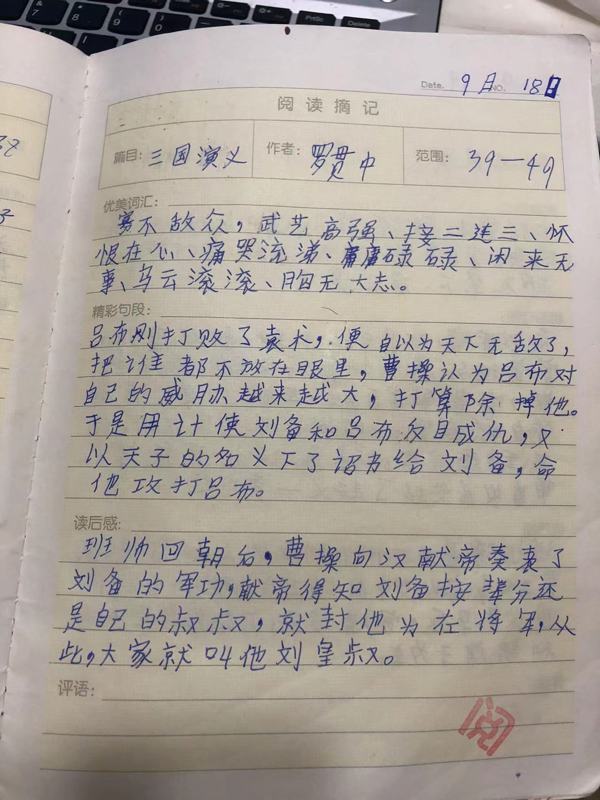 Date. 9月 NO. 18日
阅读摘记
篇目: 三国演义 作者: 罗贯中 范围: 39—49
优美词汇:
寡不敌众，武艺高强、接二连三、怀
恨在心、痛哭流涕、庸庸碌碌、闲来无
事、乌云滚滚、胸无大志。
精彩句段:
吕布刚打败了袁术，便自以为天下无敌了，
把谁都不放在眼里，曹操认为吕布对
自己的威胁越来越大，打算除掉他。
于是用计使刘备和吕布反目成仇，又
以天子的名义下了诏书给刘备，命
他攻打吕布。
读后感:
班师回朝后，曹操向汉献帝奏表了
刘备的军功，献帝得知刘备按辈分还
是自己的叔叔，就封他为左将军，从
此，大家就叫他刘皇叔。
评语:
阅